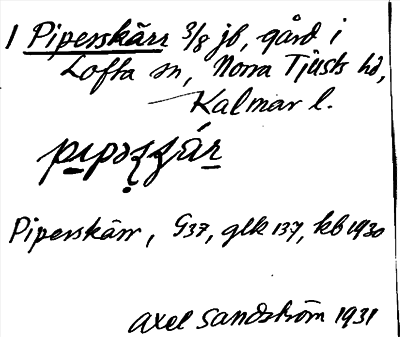 1 Piperskärr 3/8 jb, gård i
Lofta sn, Norra Tjusts hd,
Kalmar l.
Piperskärr, G37, glk 137, kb 1930
Axel Sandström 1931